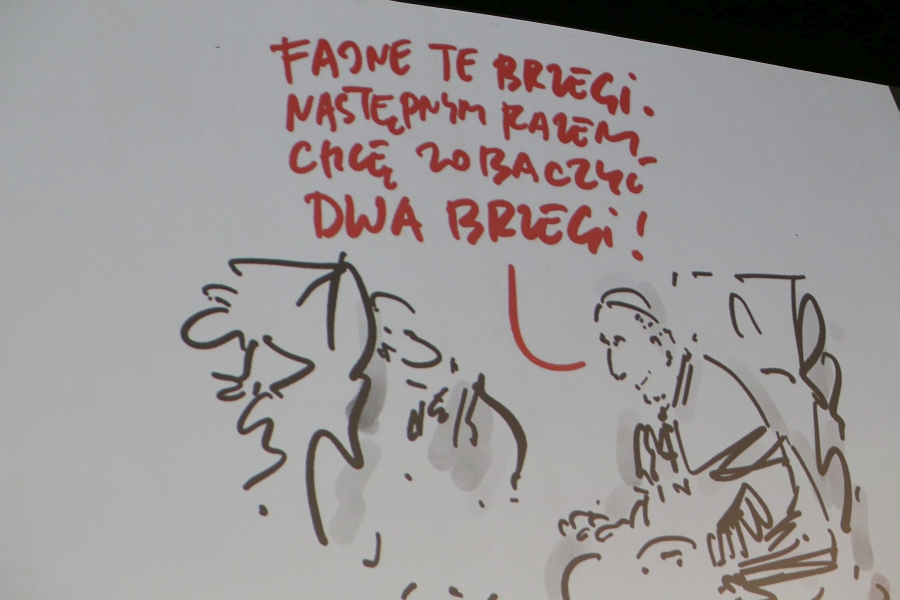 FAJNE TE BRZEGI.
NASTĘPNYM RAZEM
CHCĘ ZOBACZYĆ
DWA BRZEGI!